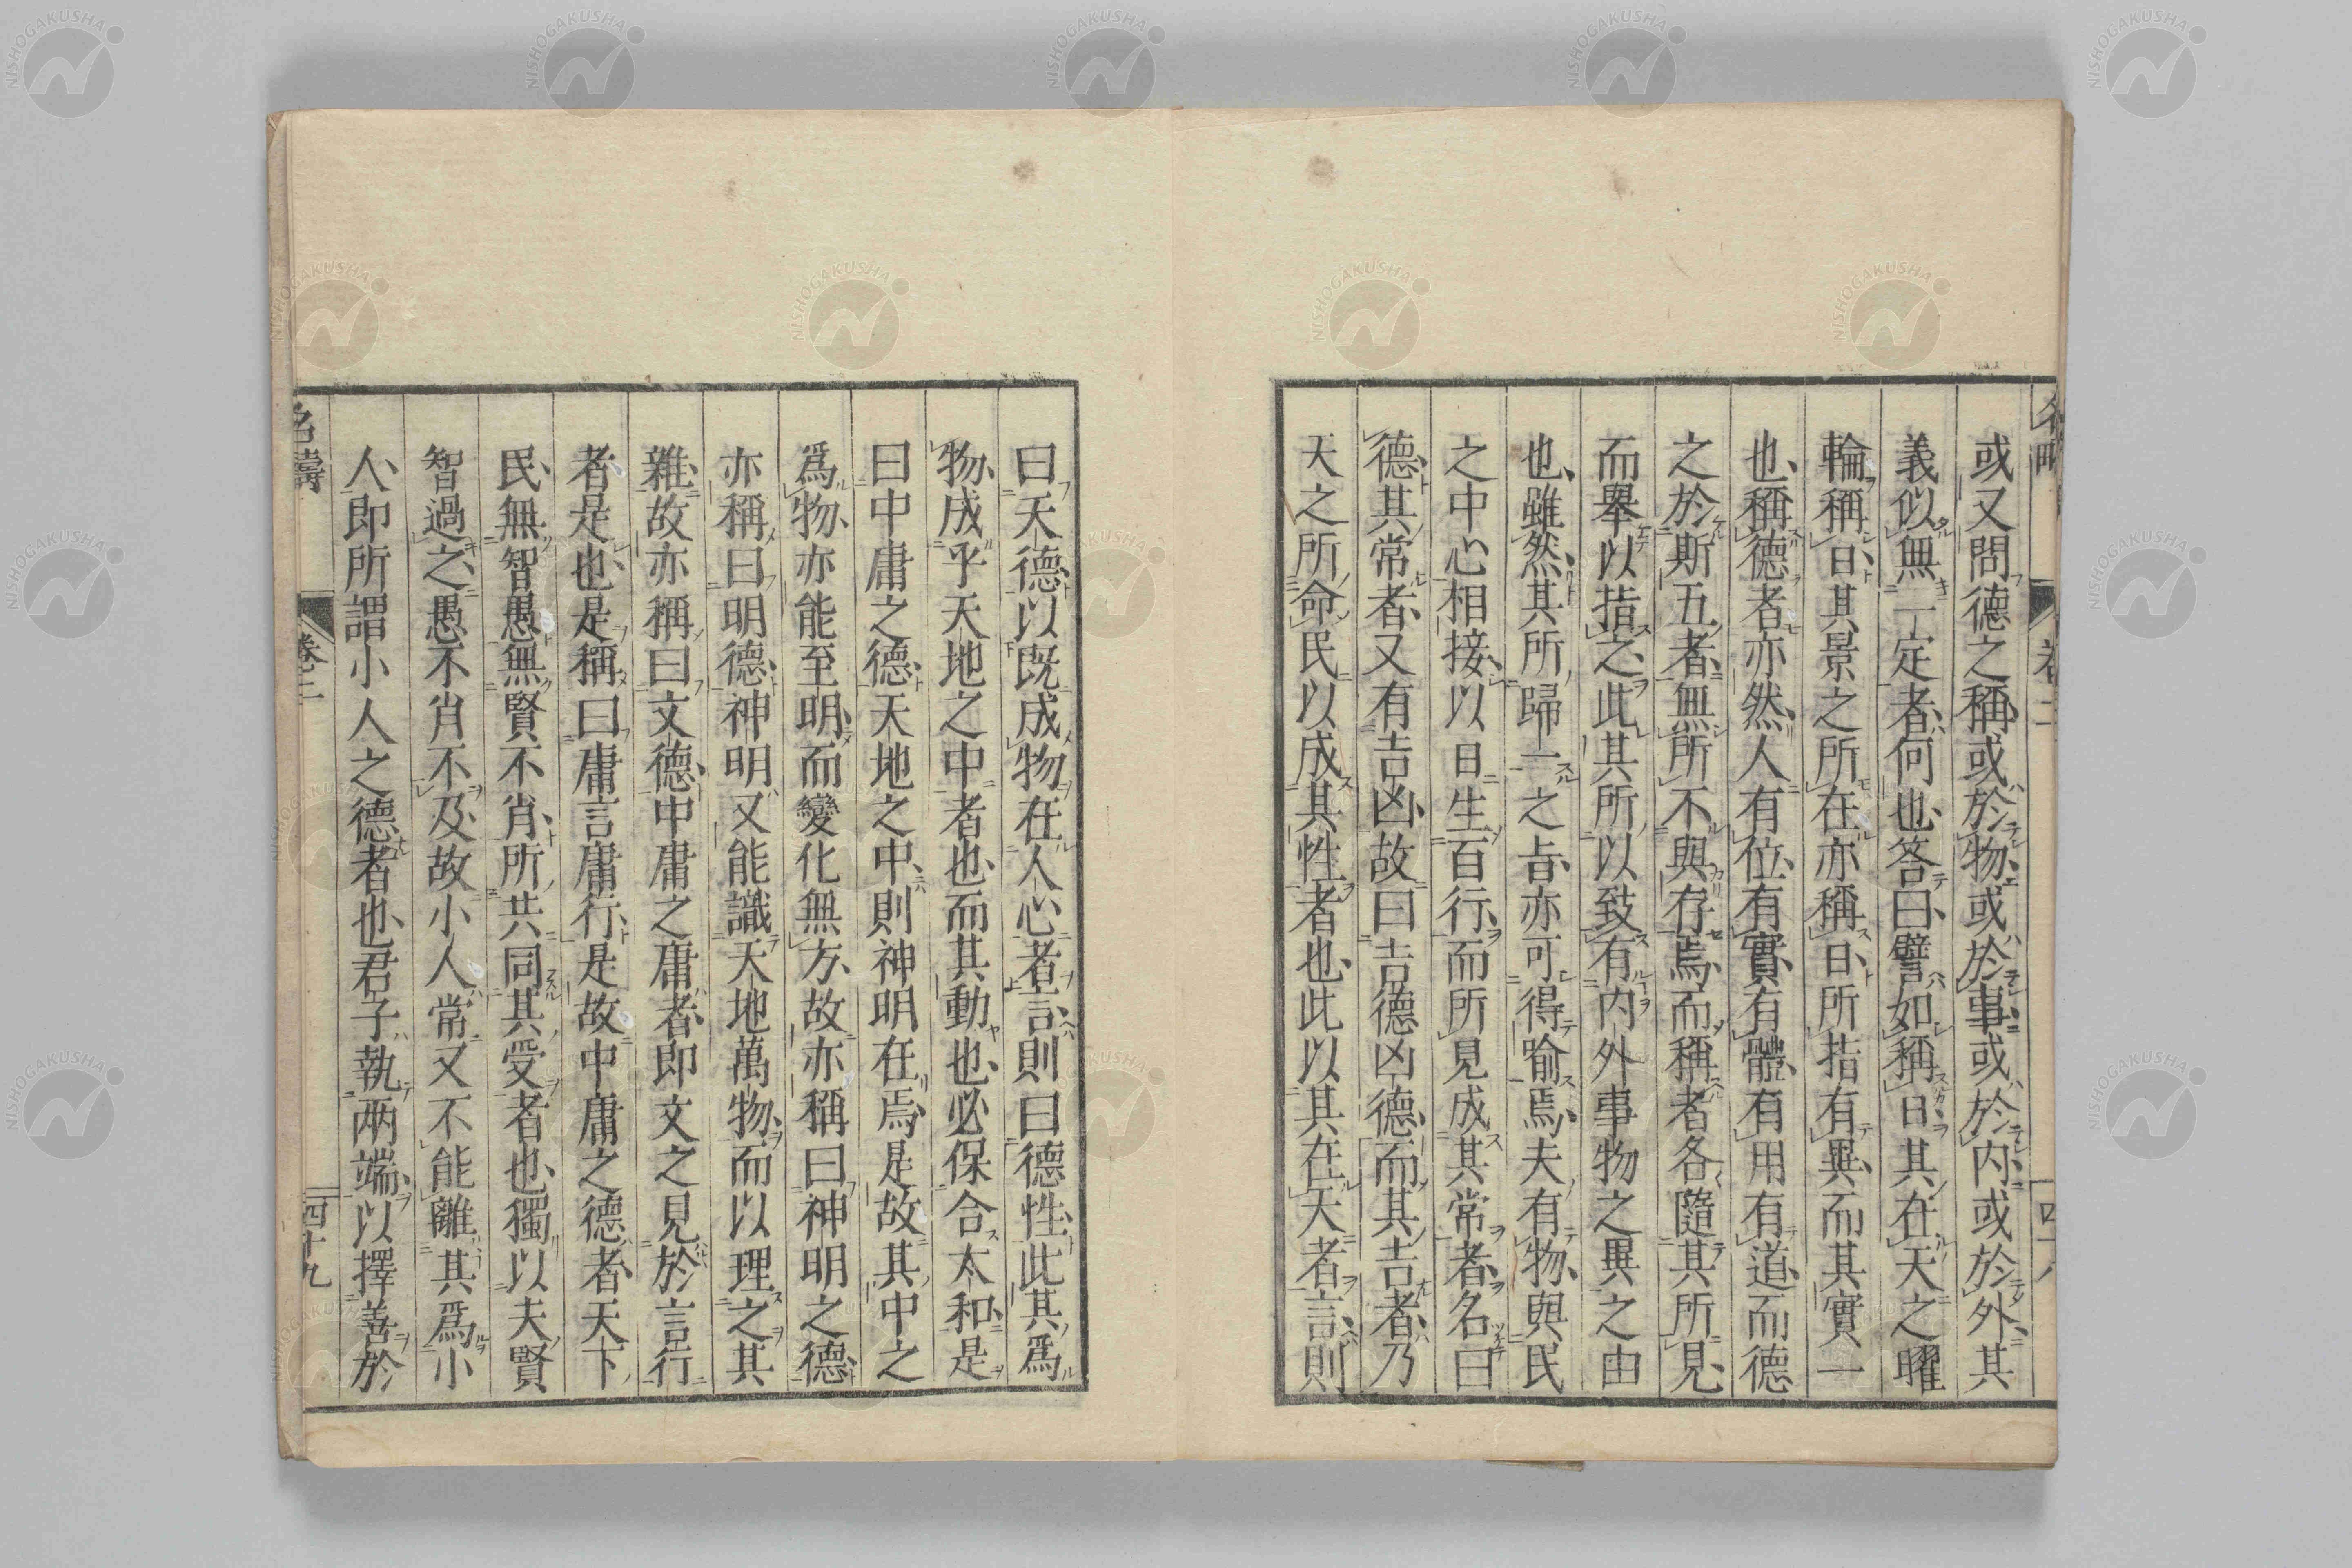 或又問德之稱或於物或於事或於內或於外其
義似無一定者何也答曰譬如稱日其在天之曜
輪稱日其景之所在亦稱日所指有異而其實一
也稱德者亦然人有位有實有體有用有道而德
之於斯五者無所不與存焉而稱者各隨其所見
而舉以指之此其所以致有內外事物之異之由
也雖然其所歸一之旨亦可得喻焉夫有物與民
之中心相接以日生百行而所見成其常者名曰
德其常者又有吉凶故曰吉德凶德而其吉者乃
天之所命民以成其性者也此以其在天者言則
曰天德以既成物在人心者言則曰德性此其爲
物成乎天地之中者也而其動也必保合太和是
曰中庸之德天地之中則神明在焉是故其中之
爲物亦能至明而變化無方故亦稱曰神明之德
亦稱曰明德神明又能識天地萬物而以理之其
雜故亦稱曰文德中庸之庸者即文之見於言行
者是也是稱曰庸言庸行是故中庸之德者天下
民無智愚無賢不肖所共同其受者也獨以夫賢
智過之愚不肖不及故小人常又不能離其爲小
人即所謂小人之德者也君子執兩端以擇善於
名疇
卷二
四十九
NISHOGAKUSHA